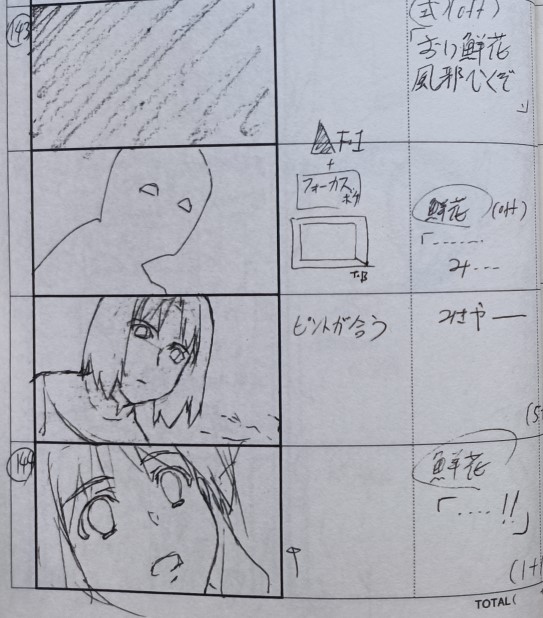 143
(式)(off)
「おい鮮花
風邪ひくぞ
」
F.I
+
フォーカス
ボケ
T.B
鮮花 (off)
「......
み...
ピントが合う
みきやー
(5
144
鮮花
「....!!」
(1+
TOTAL(